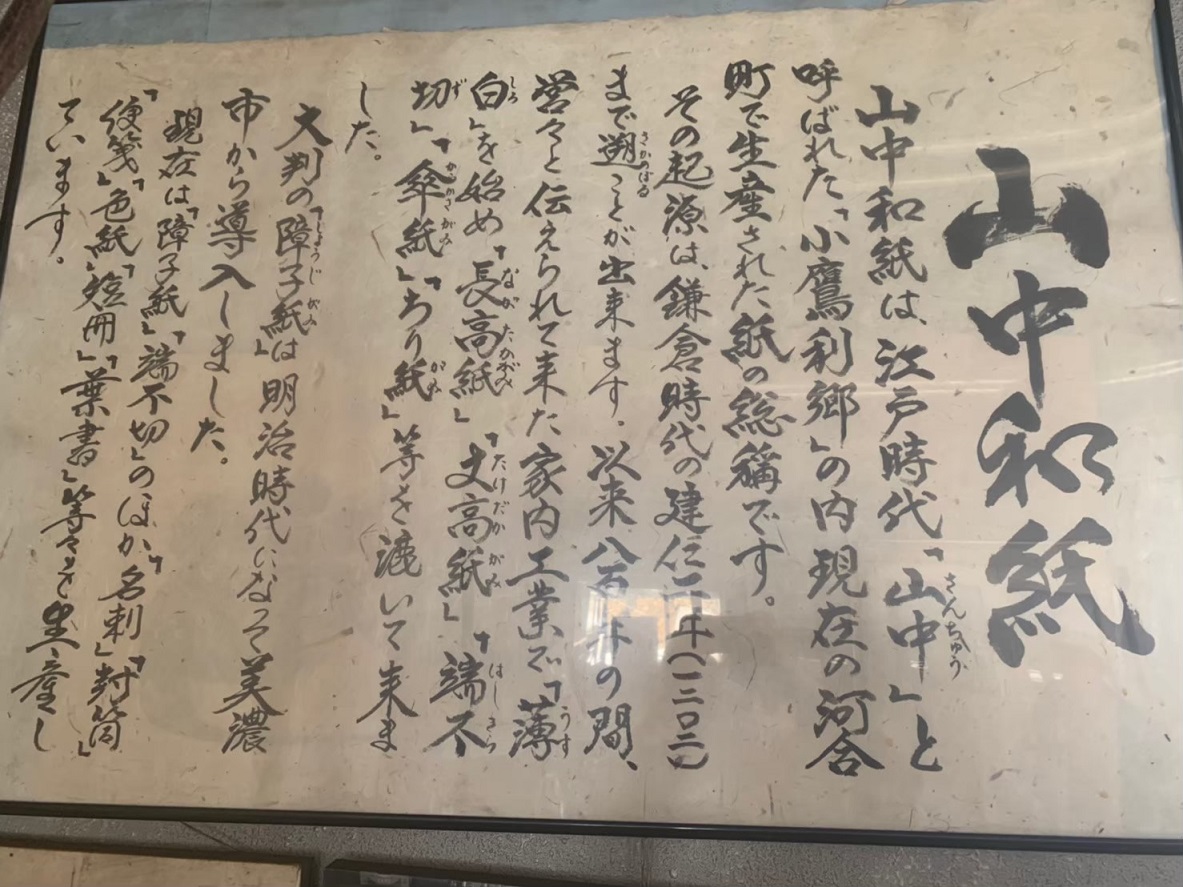 山中和紙
山中和紙は、江戸時代「山中」と
呼ばれた「小鷹利郷」の内現在の河合
町で生産された紙の総称です。
その起源は、鎌倉時代の建仁二年（一二〇二）
まで遡ことが出来ます。以来八百年の間、
営々と伝えられて来た家内工業で「薄
白」を始め「長高紙」「丈高紙」「端不
切」「傘紙」「ちり紙」等を漉いて来ま
した。
大判の「障子紙」は明治時代になって美濃
市から導入しました。
現在は「障子紙」「端不切」のほか、「名刺」「封筒」
「便箋」「色紙」「短冊」「葉書」等々を生産し
ています。
さんちゅう
さかのぼる
うす
しろ
ながたかがみ
たけだかがみ
はしきら
ず
かさがみ
がみ
しょうじがみ